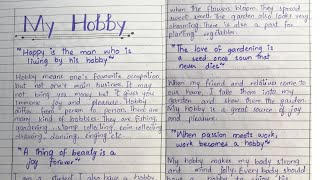 My Hobby
"Happy is the man who is
living by his hobby"
Hobby means one's favourite occupation
but not one's main business. It may
not bring any money but it gives you
immense joy and pleasure. Hobby
differ from person to person. There are
many kind of hobbies. They are fishing,
gardening, stamp collecting, coin collecting
drawing, dancing, singing etc.
"A thing of beauty is a
joy forever"
I am a student. I also have a hobby.
when the flowers bloom. They spread
sweet smell. The garden also looks very
charming. There is also a part for
planting vegetables.
"The love of gardening is
a seed once sown that
never dies"
When my friend and relatives come to
our house, I take them into my
garden and show them the garden.
My hobby is a great source of joy
and pleasure.
"When passion meets work,
work becomes a hobby"
My hobby makes my body strong
and mind jolly. Every body should
have a hobby